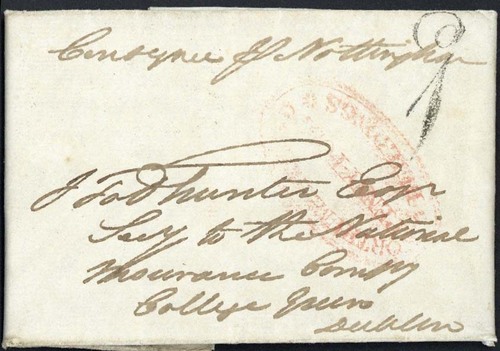 Consignee of Nottingham
J Todhunter Esqr
Secy to the National
Insurance Compy
College Green
Dublin